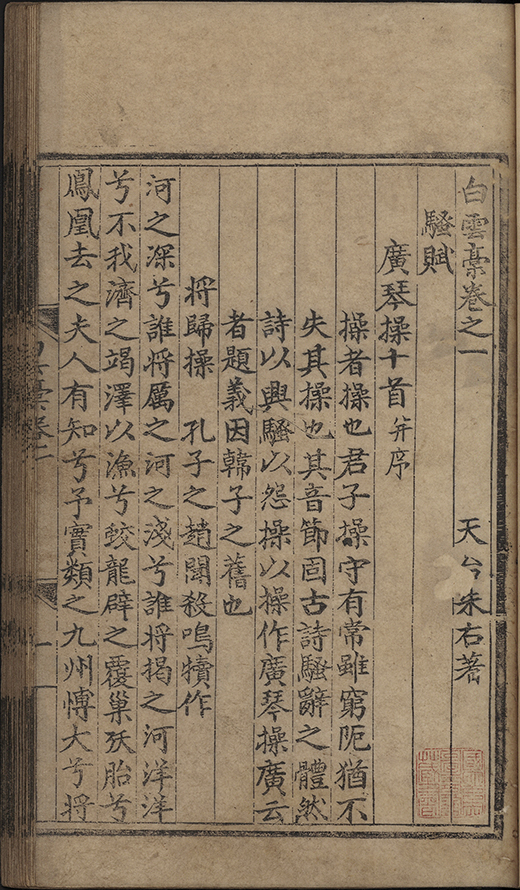 白雲稾卷之一　天台朱右著
騷賦
廣琴操十首 并序
操者操也君子操守有常雖窮阨猶不
失其操也其音節固古詩騷辭之體然
詩以興騷以怨操以操作廣琴操廣云
者題義因韓子之舊也
將歸操　孔子之趙聞殺鳴犢作
河之深兮誰將厲之河之淺兮誰將揭之河洋洋
兮不我濟之竭澤以漁兮蛟龍辟之覆巢殀胎兮
鳳凰去之夫人有知兮予實類之九州愽大兮將